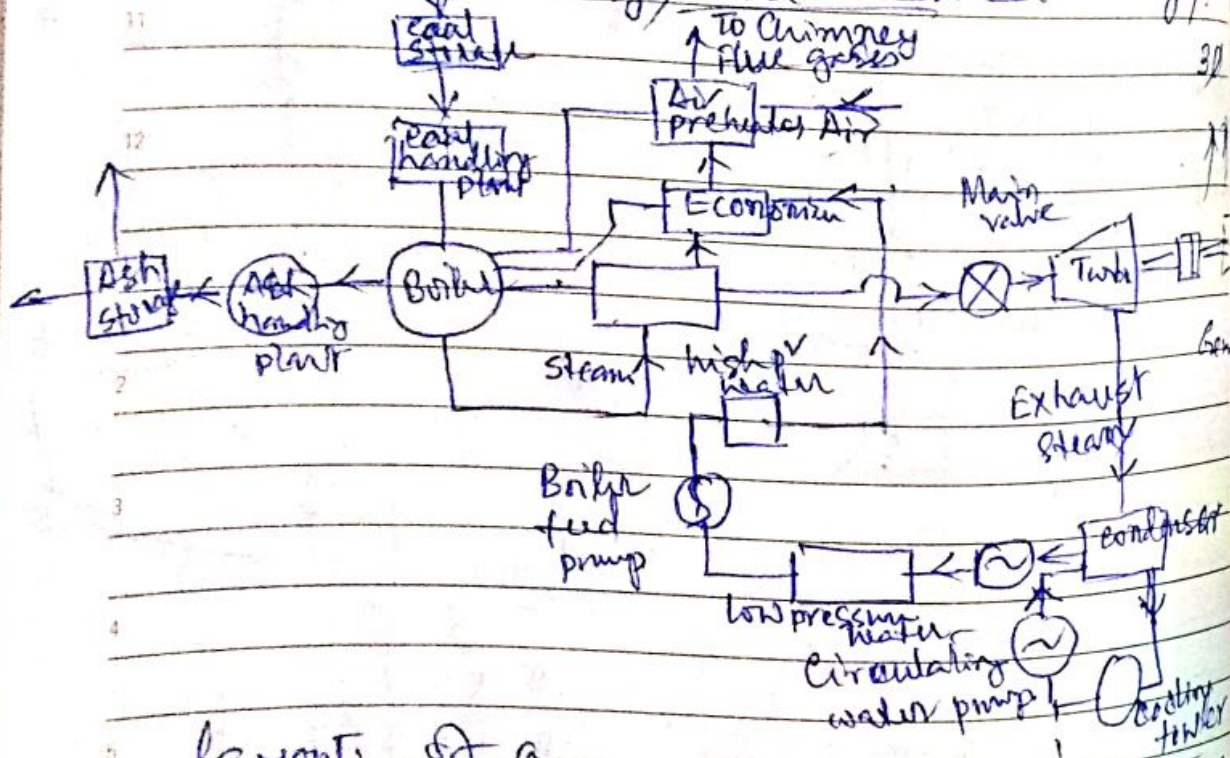 11
coal
storage
To Chimney
Flue gases
Air
preheater Air
12
coal
handling
plant
Economiser
Main
valve
Ash
storage
Ash
handling
plant
Boiler
Turbi
2
Steam
high pr
heater
Gen
Exhaust
steam
3
Boiler
feed
pump
condenser
low pressure
heater
4
Circulating
water pump
cooling
tower
layout of a